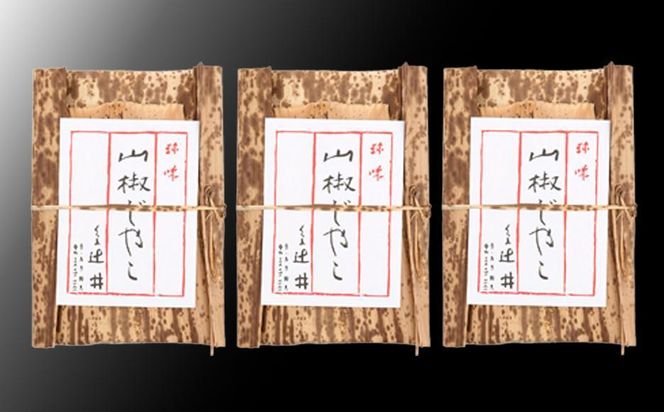 珍味
山椒じやこ
くらま辻井
珍味
山椒じやこ
くらま辻井
珍味
山椒じやこ
くらま辻井